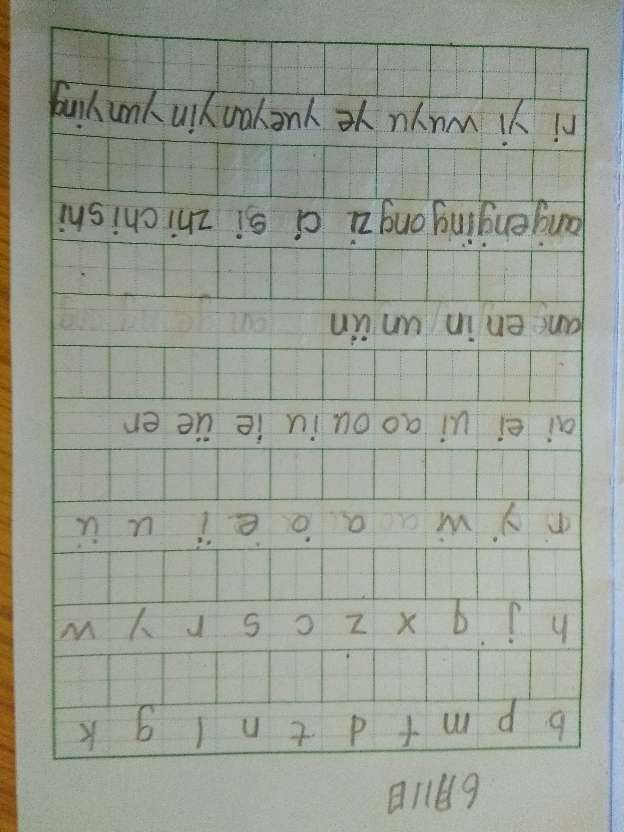 6月11日
b p m f d t n l g k
h j q x z c s r y w
r y w a o e i u ü
ai ei ui ao ou iu ie üe er
an en in un ün
ang eng ing ong zi ci si zhi chi shi
ri yi wu yu ye yue yan yin yun ying